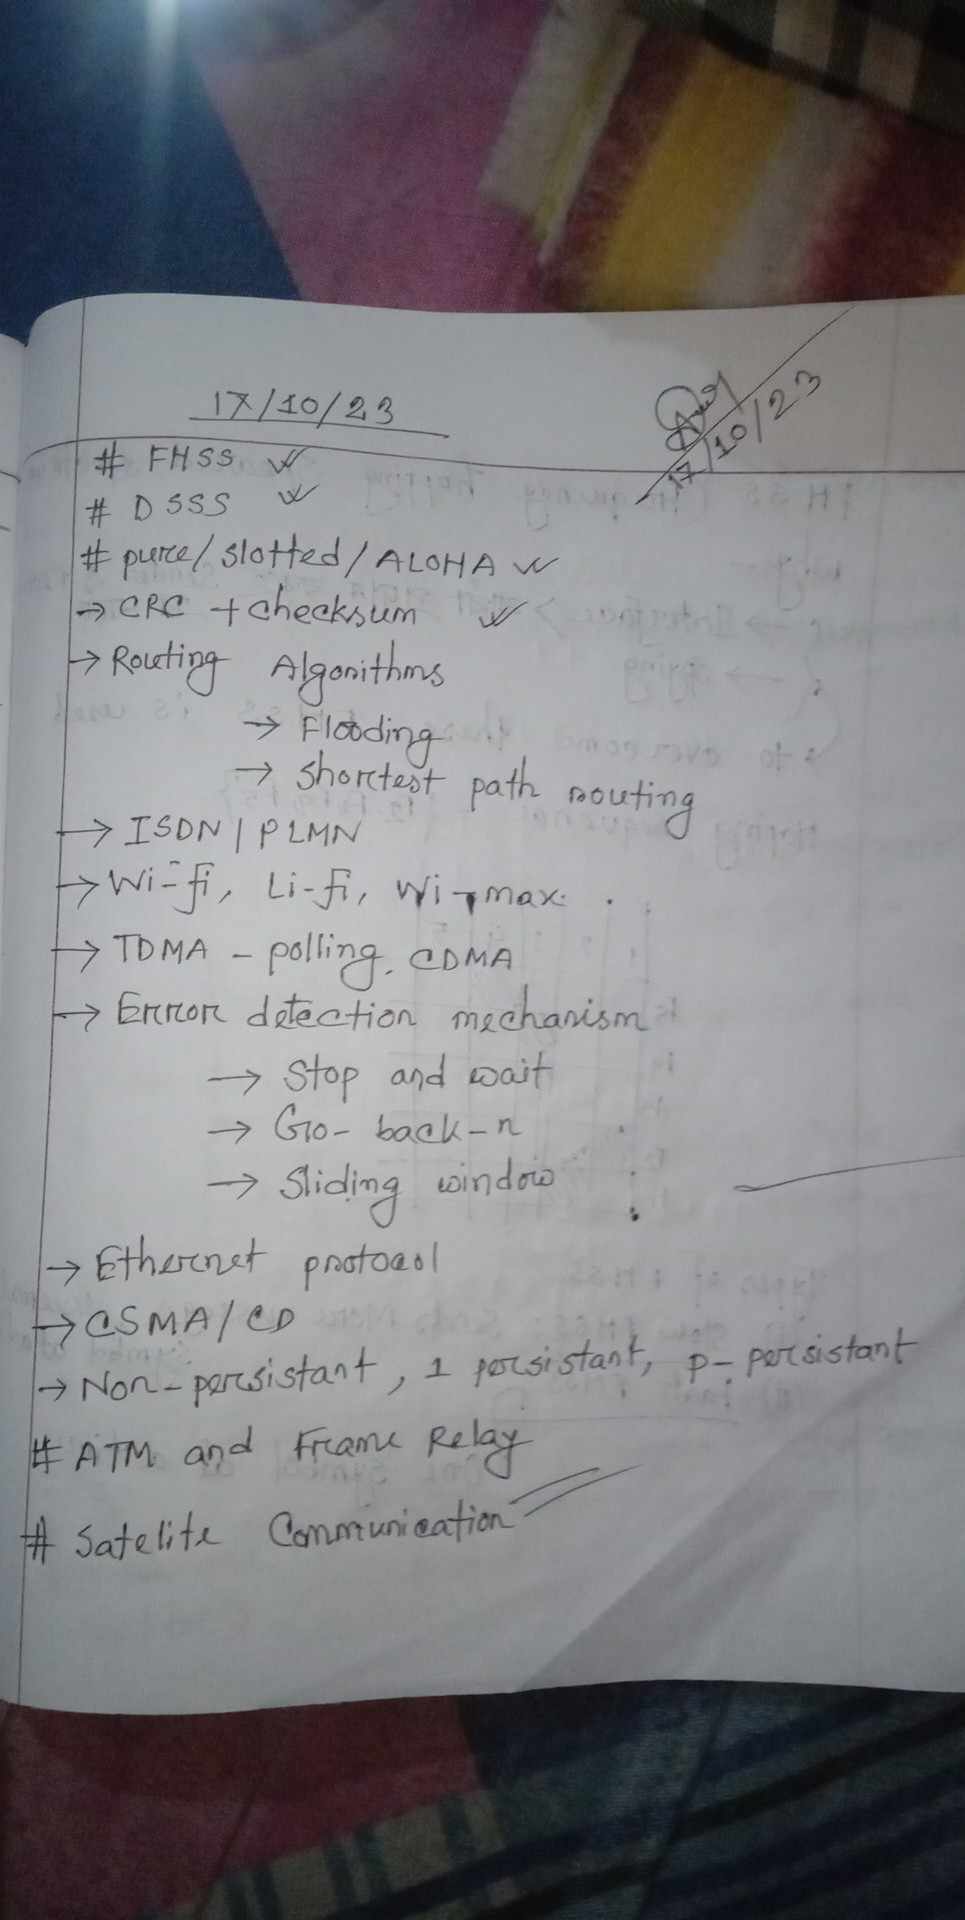 17/10/23
17/10/23
# FHSS
# DSSS
# pure/slotted/ALOHA
→ CRC + checksum
→ Routing Algorithms
→ Flooding
→ shortest path routing
→ ISDN | PLMN
→ Wi-fi, Li-fi, Wi-max.
→ TDMA - polling, CDMA
→ Error detection mechanism
→ Stop and wait
→ Go-back-n
→ Sliding window
→ Ethernet protocol
→ CSMA/CD
→ Non-persistant, 1 persistant, p-persistant
# ATM and Frame Relay
# Satelite Communication